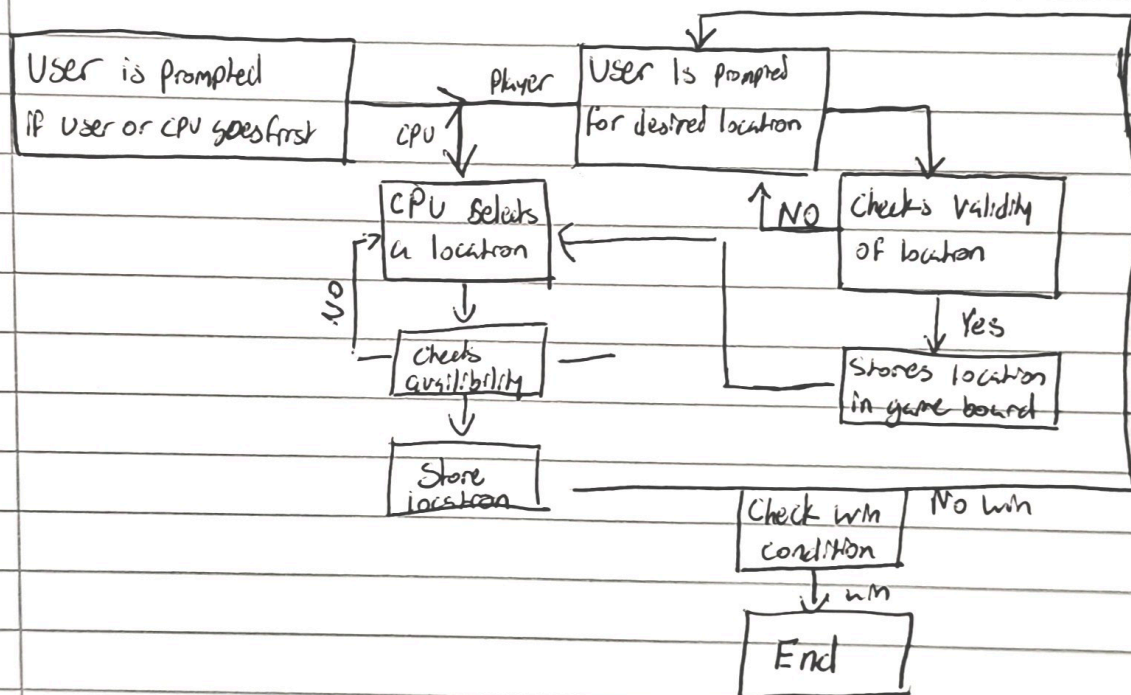 User is prompted
if user or CPU goes first
Player
CPU
User Is prompted
for desired location
CPU Selects
a location
NO
Checks Validity
of location
NO
Yes
Checks
availibility
Stores location
in game board
Store
location
Check win
condition
No win
win
End